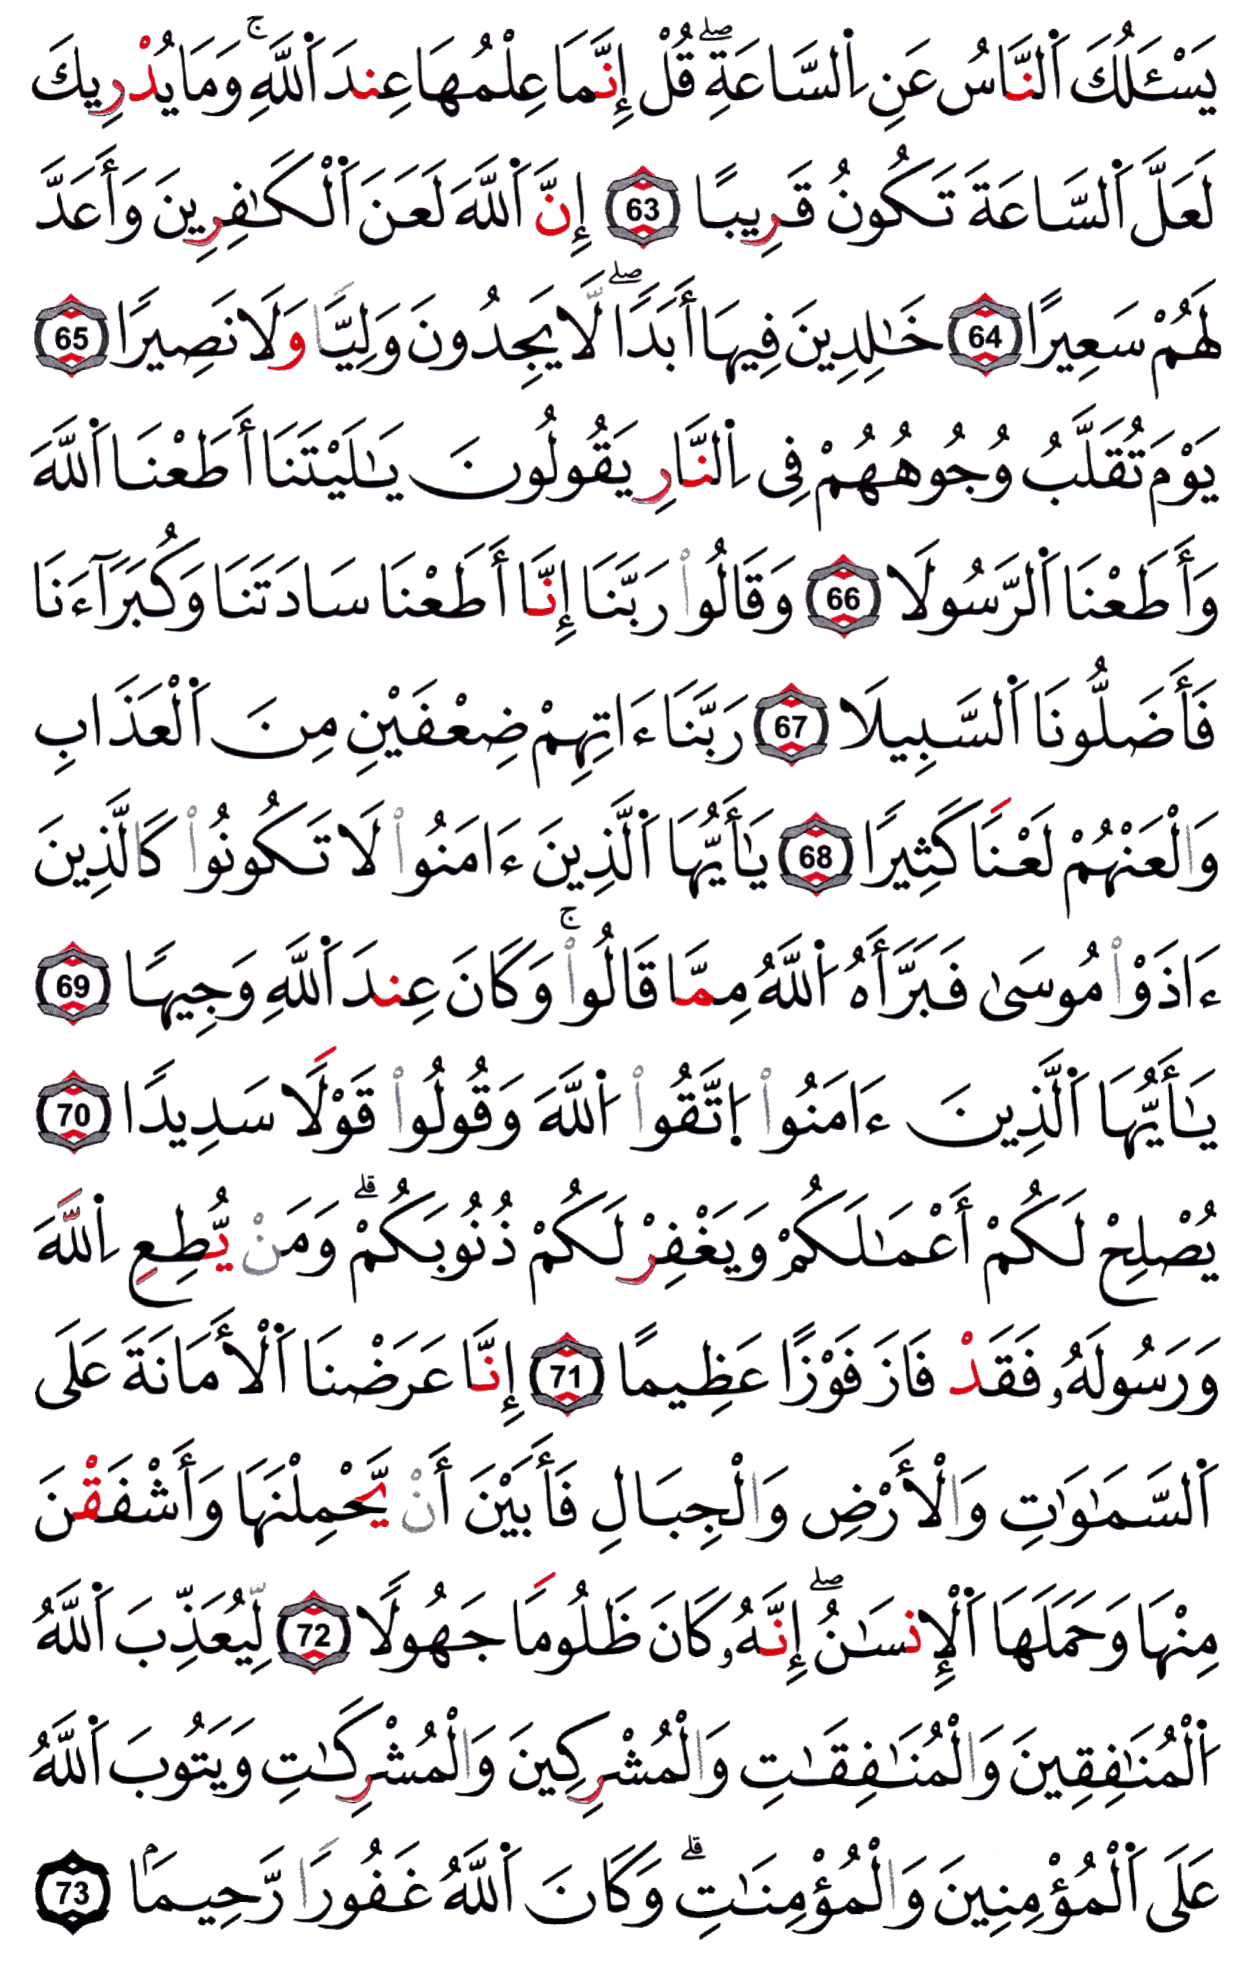 يَسْـَٔلُكَ اَ۬لنَّاسُ عَنِ اِ۬لسَّاعَةِۖ قُلْ إِنَّمَا عِلْمُهَا عِندَ اَ۬للَّهِۚ وَمَا يُدْرِيكَ
لَعَلَّ اَ۬لسَّاعَةَ تَكُونُ قَرِيبًا 63 إِنَّ اَ۬للَّهَ لَعَنَ اَ۬لْكَٰفِرِينَ وَأَعَدَّ
لَهُمْ سَعِيرًا 64 خَٰلِدِينَ فِيهَا أَبَدًاۖ لَّا يَجِدُونَ وَلِيًّا وَلَا نَصِيرًا 65
يَوْمَ تُقَلَّبُ وُجُوهُهُمْ فِى اِ۬لنَّارِ يَقُولُونَ يَٰلَيْتَنَا أَطَعْنَا اَ۬للَّهَ
وَأَطَعْنَا اَ۬لرَّسُولَا 66 وَقَالُواْ رَبَّنَا إِنَّا أَطَعْنَا سَادَتَنَا وَكُبَرَآءَنَا
فَأَضَلُّونَا اَ۬لسَّبِيلَا 67 رَبَّنَا ءَاتِهِمْ ضِعْفَيْنِ مِنَ اَ۬لْعَذَابِ
وَالْعَنْهُمْ لَعْنًا كَثِيرًا 68 يَٰأَيُّهَا اَ۬لَّذِينَ ءَامَنُواْ لَا تَكُونُواْ كَالَّذِينَ
ءَاذَوْاْ مُوسَىٰ فَبَرَّأَهُ اُ۬للَّهُ مِمَّا قَالُواْۚ وَكَانَ عِندَ اَ۬للَّهِ وَجِيهًا 69
يَٰأَيُّهَا اَ۬لَّذِينَ ءَامَنُواْ اُ۪تَّقُواْ اُ۬للَّهَ وَقُولُواْ قَوْلًا سَدِيدًا 70
يُصْلِحْ لَكُمْ أَعْمَٰلَكُمْ وَيَغْفِرْ لَكُمْ ذُنُوبَكُمْۗ وَمَنْ يُّطِعِ اِ۬للَّهَ
وَرَسُولَهُۥ فَقَدْ فَازَ فَوْزًا عَظِيمًا 71 إِنَّا عَرَضْنَا اَ۬لْأَمَانَةَ عَلَى
اَ۬لسَّمَٰوَٰتِ وَالْأَرْضِ وَالْجِبَالِ فَأَبَيْنَ أَنْ يَّحْمِلْنَهَا وَأَشْفَقْنَ
مِنْهَا وَحَمَلَهَا اَ۬لْإِنسَٰنُۖ إِنَّهُۥ كَانَ ظَلُومًا جَهُولًا 72 لِّيُعَذِّبَ اَ۬للَّهُ
اُ۬لْمُنَٰفِقِينَ وَالْمُنَٰفِقَٰتِ وَالْمُشْرِكِينَ وَالْمُشْرِكَٰتِ وَيَتُوبَ اَ۬للَّهُ
عَلَى اَ۬لْمُؤْمِنِينَ وَالْمُؤْمِنَٰتِۗ وَكَانَ اَ۬للَّهُ غَفُورًا رَّحِيمَۢا 73